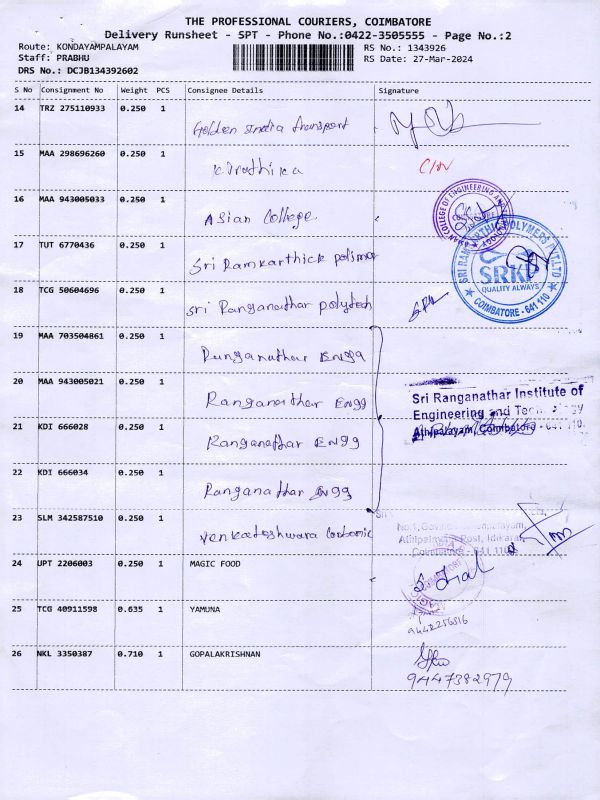 THE PROFESSIONAL COURIERS, COIMBATORE
Delivery Runsheet - SPT - Phone No.:0422-3505555 - Page No.:2
Route: KONDAYAMPALAYAM RS No.: 1343926
Staff: PRABHU RS Date: 27-Mar-2024
DRS No.: DCJB134392602
S No Consignment No Weight PCS Consignee Details Signature
14 TRZ 275110933 0.250 1
Golden India transport
15 MAA 298696260 0.250 1
Kiruthika
16 MAA 943005033 0.250 1
Asian College.
17 TUT 6770436 0.250 1
Sri Ramkarthick polimar
18 TCG 50604696 0.250 1
Sri Ranganathar polytech
SRI RAM KARTHIC POLYMERS PVT LTD
SRKP
QUALITY ALWAYS
COIMBATORE - 641 110
19 MAA 703504861 0.250 1
Runganathar Engg
20 MAA 943005021 0.250 1
Ranganathar Engg
Sri Ranganathar Institute of
Engineering and
Athipalayam, Coimbatore - 641 110.
21 KDI 666028 0.250 1
Ranganathar Engg
22 KDI 666034 0.250 1
Ranganathar Engg
23 SLM 342587510 0.250 1
Venkateshwara
24 UPT 2206003 0.250 1 MAGIC FOOD
25 TCG 40911598 0.635 1 YAMUNA
26 NKL 3350387 0.710 1 GOPALAKRISHNAN
9447382979